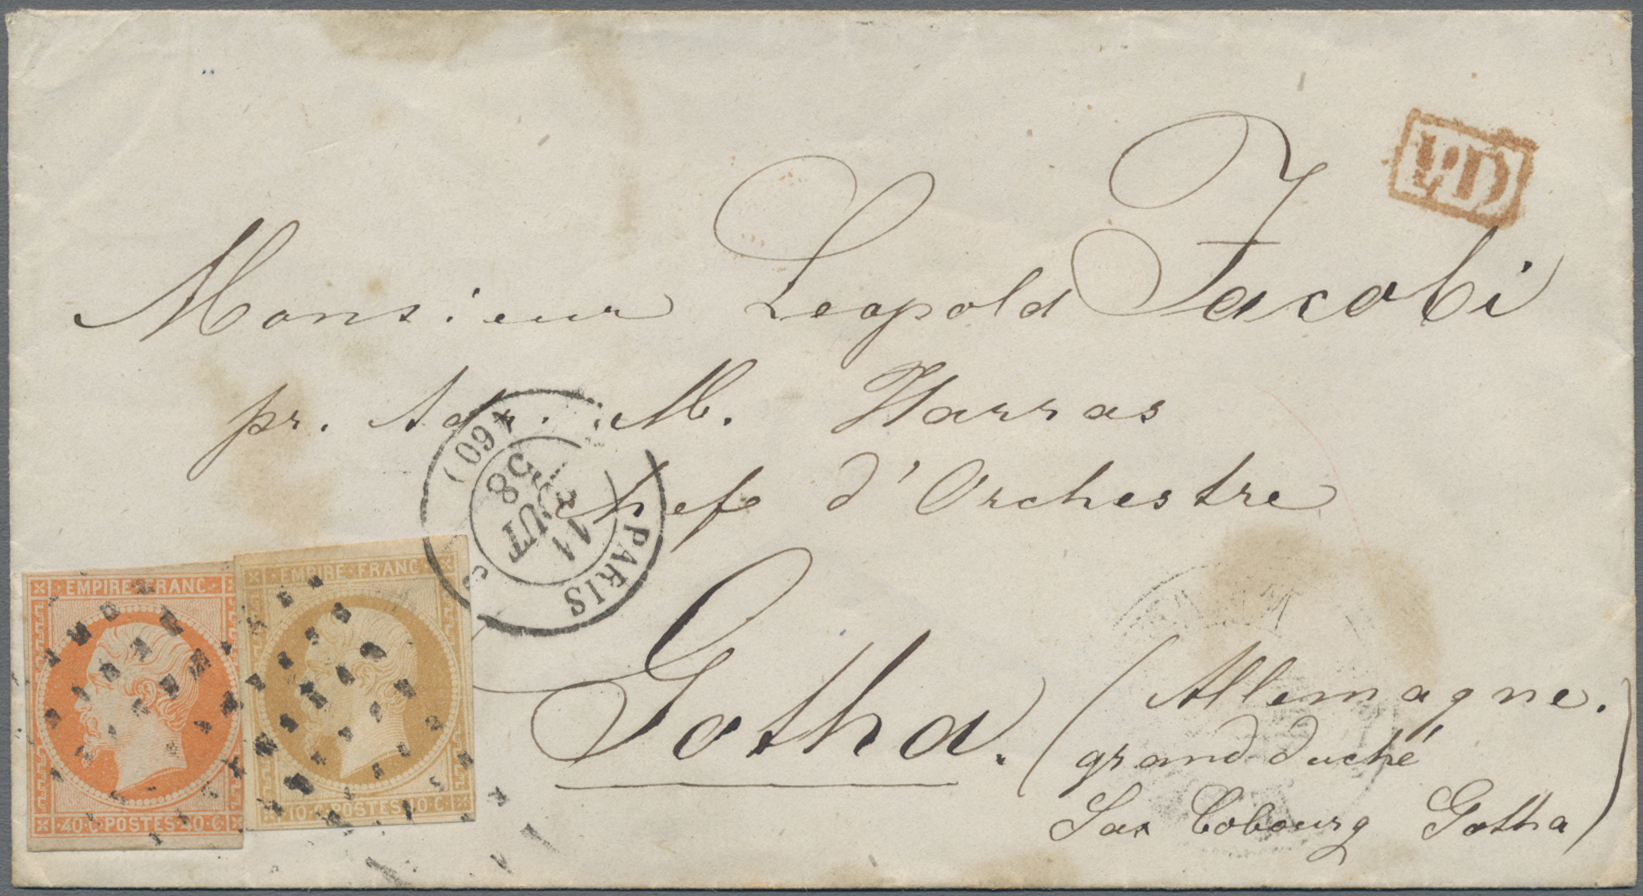 PD
Monsieur Leopold Jacobi
pr. Adr. M. Harras
chef d'Orchestre
Gotha. (Allemagne.
grand duché
Sax Cobourg Gotha)
PARIS
11
AOUT
58
(60)
EMPIRE FRANC
40·C·POSTES·40·C
EMPIRE·FRANC
10·C·POSTES·10·C